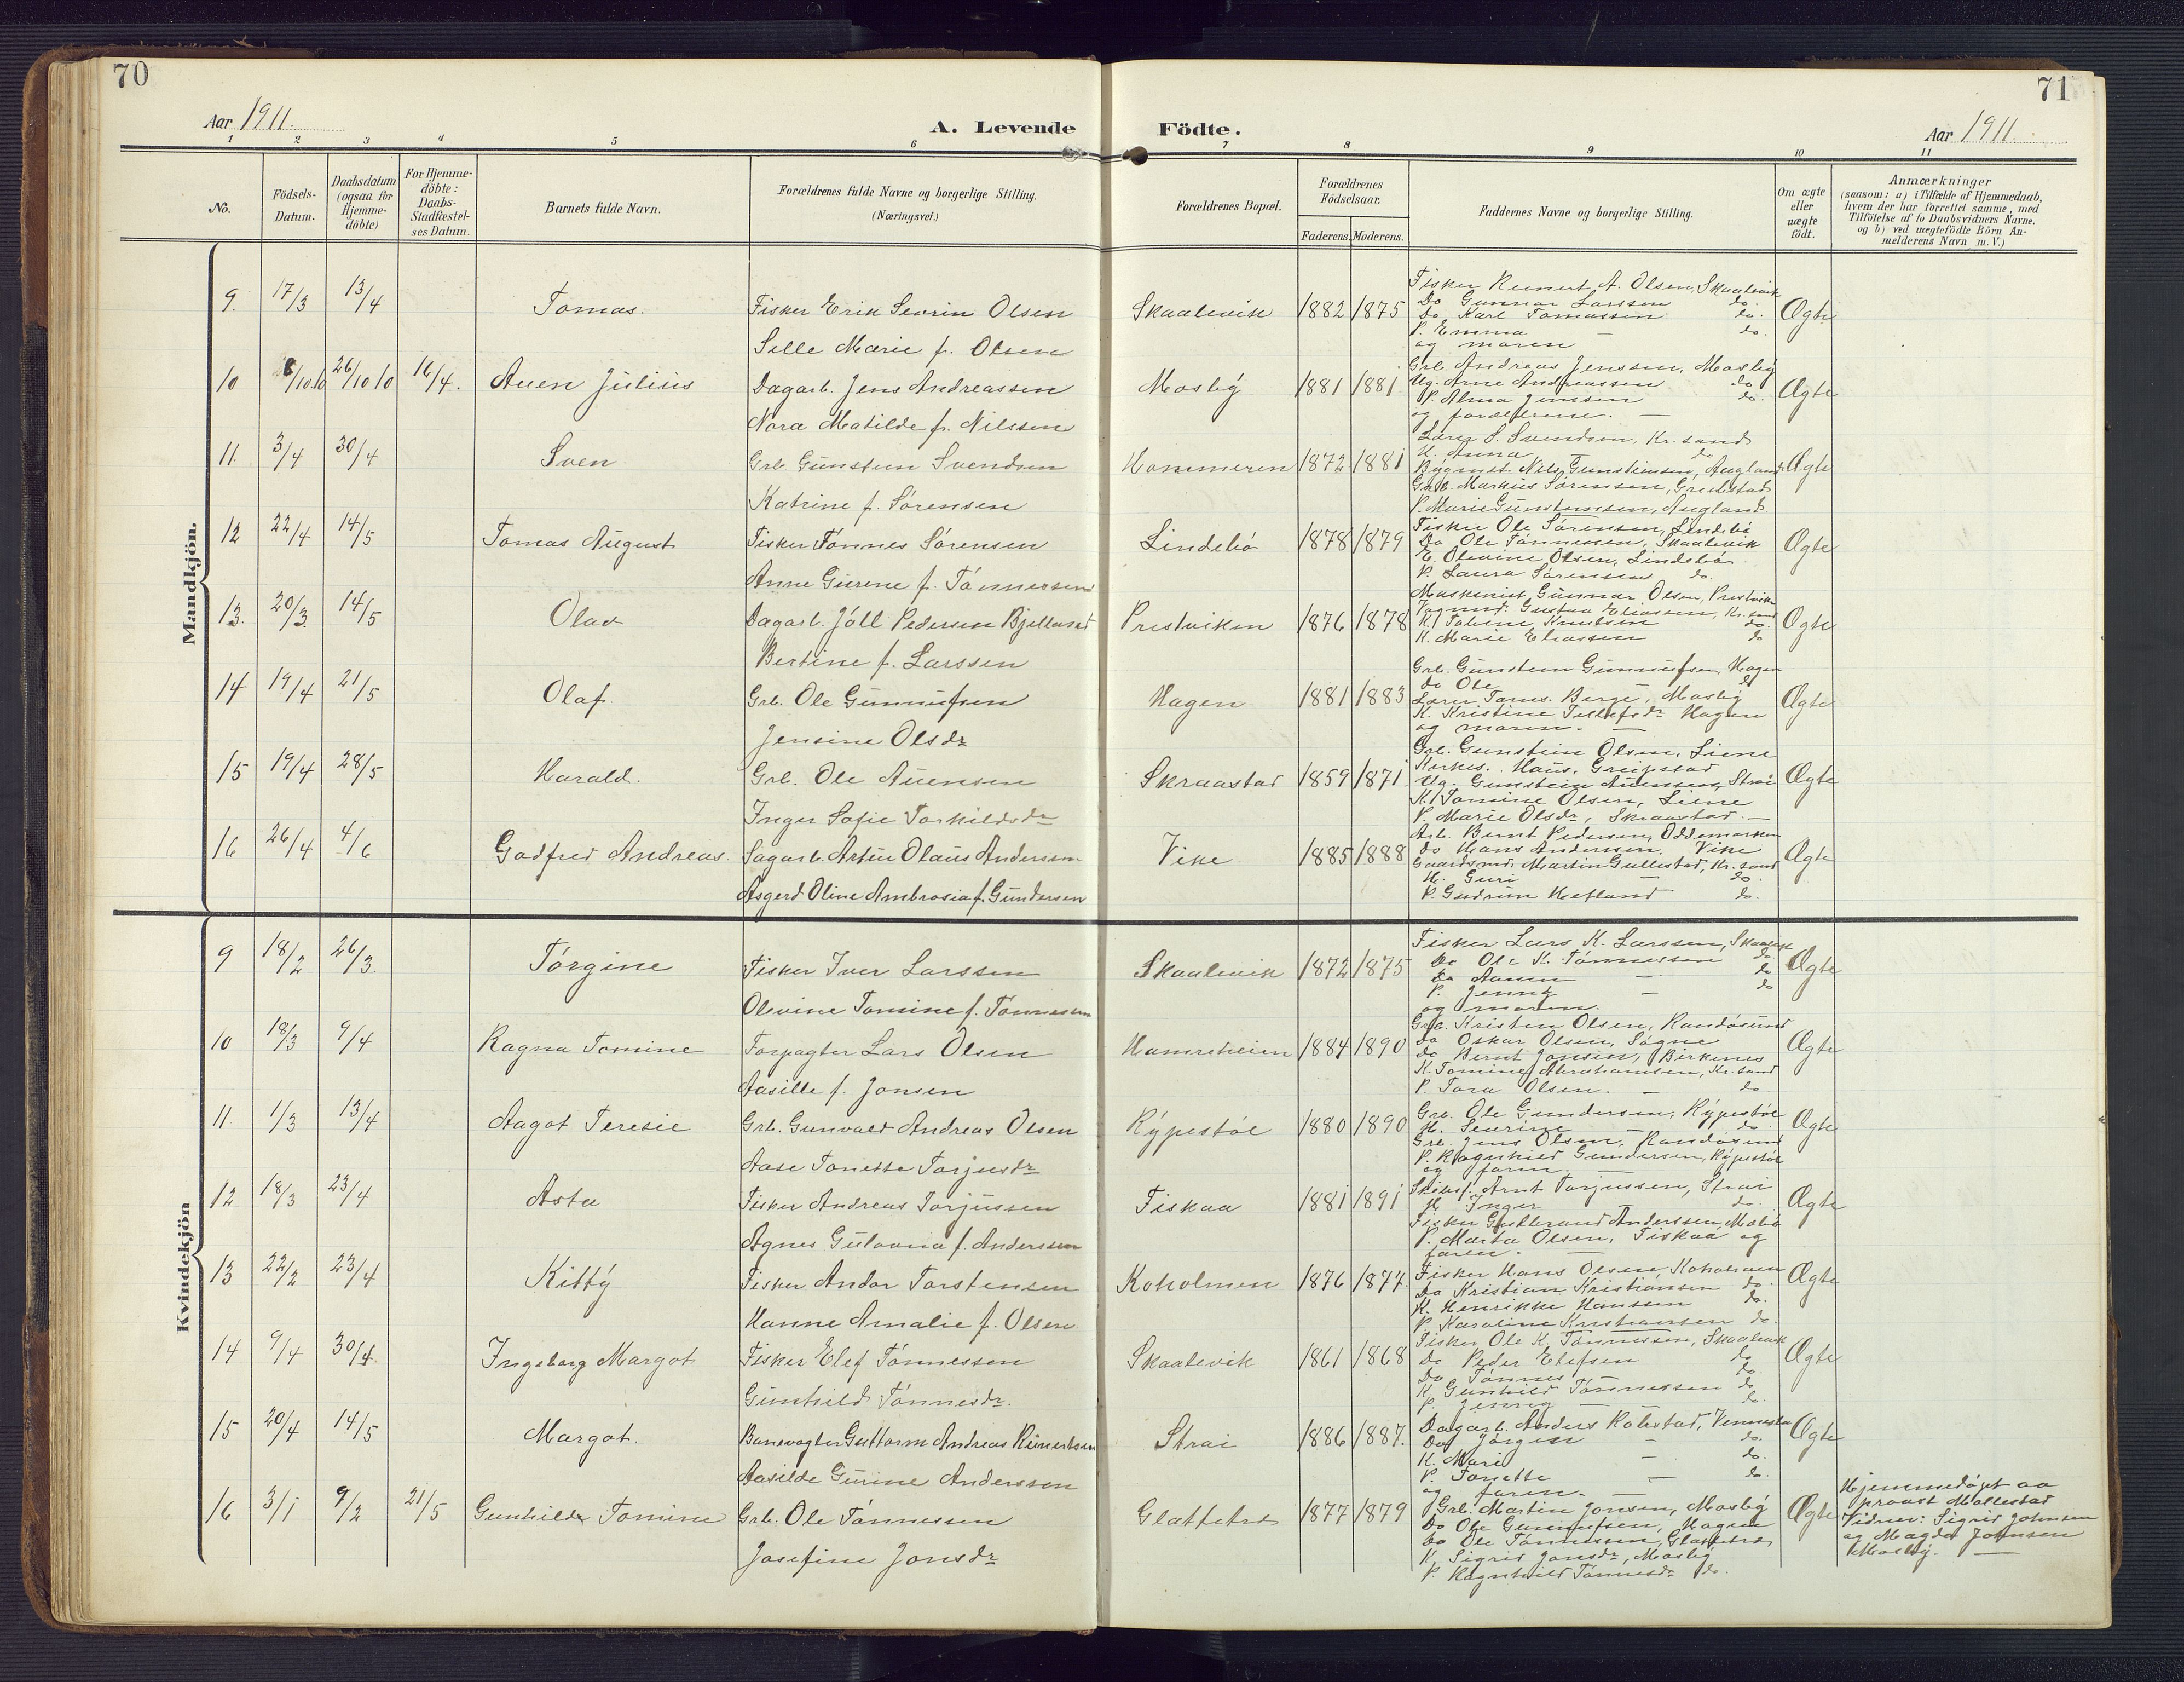 70
71
Aar 1911.
A. Levende Födte.
Aar 1911.
1 2 3 4 5 6 7 8 9 10 11
No.
Födsels-Datum.
Daabsdatum (ogsaa for Hjemme-døbte)
For Hjemme-døbte: Daabs-Stadfæstel-ses Datum.
Barnets fulde Navn.
Forældrenes fulde Navne og borgerlige Stilling. (Næringsvei.)
Forældrenes Bopæl.
Forældrenes Fødselsaar.
Faderens. Moderens.
Faddernes Navne og borgerlige Stilling.
Om ægte eller uægte født.
Anmærkninger
(saasom: a) i Tilfælde af Hjemmedaab, hvem der har forrettet samme, med Tilføielse af to Daabsvidners Navne. og b) ved uægtefødte Børn Anmelderens Navn m. V.)
Mandkjön.
9. 17/3 13/4 Tomas. Fisker Erik Sevrin Olsen Skaalevik 1882 1875 Ægte
Sille Marie f. Olsen
Fisker Reinert A. Olsen, Skaalevik
Do Gunnar Larssen do.
Do Karl Tomassen do.
P. Emma — do.
og moren
10 26/10 10 16/4. Auen Julius Dagarb. Jens Andreassen Mosby 1881 1881 Ægte
Nora Matilde f. Nilssen
Grb. Andreas Jenssen, Mosby
Ug. Arne Andreassen do
P. Alma Jenssen do.
og forældrene. —
11. 3/4 30/4 Sven Grb. Gunsten Svendsen Hommeren 1872 1881 Ægte
Katrine f. Sørensen
Lærer S. Svendsen, Kr.sand
K. Anna do
Bygmst. Nils Gunsteinsen, Augland
Grb. Markus Sørensen, Greibstad
P. Marie Gunsteinsen, Augland
12 22/4 14/5 Tomas August Fisker Tønnes Sørensen Lindebø 1878 1879 Ægte
Anne Gurene f. Tønnessen
Fisker Ole Sørensen, Lindebø
Do Ole Tønnessen, Skaalevik
E. Olevine Olsen, Lindebø
P. Laura Sørensen do.
13. 20/3 14/5 Olav Dagarb. Jóll Pedersen Bjelland Prestviken 1876 1878 Ægte
Bertine f. Larssen
Maskinist Gunnar Olsen, Prestviken
Vognmd. Gustav Eliassen, Kr.sand
K. Marie Eliassen do
14 19/4 21/5 Olaf Grb. Ole Gunnufsen Hagen 1881 1883 Ægte
Jensine Olsdr
Grb. Gunstein Gunnufsen, Hagen
Do Ole do
K. Kristine Tellefsdr Hagen
og moren. —
15 19/4 28/5 Harald. Grb. Ole Auensen Skraastad 1859 1871 Ægte
Inger Sofie Torkildsdr
Grb. Gunstein Olsen, Liene
Kirkes. Haus, Greipstad
Ug. Gunstein Auensen, Strai
K. Tomine Olsen, Liene
P. Marie Olsdr, Skraastad. —
16 26/4 4/6 Godfred Andreas. Sagarb. Artur Olaus Andersen. Vike 1885 1888 Ægte
Asgerd Oline Ambrosia f. Gundersen
Arb. Bernt Pedersen, Oddemarken
Do Hans Andersen. Vike
Gaardsmd. Martin Gullestad, Kr.sand
H. Guri — do.
P. Gudrun Hefland do.
Kvindekjön
9 18/2 26/3. Tørgine Fisker Iver Larssen Skaalevik 1872 1875 Ægte
Olevine Tomine f. Tønnessen
Fisker Lars K. Larssen, Skaalevik
Do Ole K. Tønnessen do
P. Jenny — do
og moren.
10 18/3 9/4 Ragna Tomine Forpagter Lars Olsen Hamreheien 1884 1890 Ægte
Aasille f. Jonsen
Grb. Kristen Olsen, Randøsund
do Oskar Olsen, Søgne
do Bernt Jonsen, Birkenes
K. Tomine Abrahamsen, Kr.sand
P. Tora Olsen. — do.
11. 1/3 13/4 Aagot Teresie Grb. Gunvald Andreas Olsen Rypestøl 1880 1890 Ægte
Aase Tonette Torjusdr
Grb. Ole Gundersen, Rypestøl
H. Severine — do.
Grb. Jens Olsen, Randøsund
P. Ragnhild Gundersen, Rypestøl
og faren. —
12 18/3 23/4 Asta Fisker Andreas Torjussen Fiskaa 1881 1891 Ægte
Agnes Gulovna f. Anderssen
Skibsf. Arnt Torjussen, Strai
H. Inger — do.
Fisker Gullbrand Anderssen,
P. Marta Olsen, Fiskaa og
faren. —
13 22/2 23/4 Kitty Fisker Andor Torstensen Koholmen 1876 1877. Ægte
Hanne Amalie f. Olsen
Fisker Hans Olsen, Koholmen
Do Kristian Kristiansen do.
K. Henrikke Hansen do.
P. Karoline Kristiansen do.
14 9/4 30/4 Ingeborg Margot Fisker Elef Tønnessen Skaalevik 1861 1868 Ægte
Gunhild Tønnesdr.
Fisker Ole K. Tønnessen, Skaalevik
Do Peder Elefsen do
Do Tønnes — do
K. Gunhild Tønnessen do
P. Jenny — do.
15 20/4 14/5 Margot. Banevogter Guttorm Andreas Reinertsen Strai 1886 1887. Ægte
Aasilde Gurine Anderssen
Dagarb. Anders Robstad, Vennesla
Do Jørgen — do.
K. Mari — do.
P. Tonette — do.
og faren. —
16 3/1 9/2 21/5 Gunhilde Tomine Grb. Ole Tønnessen Glattetre 1877 1879 Ægte
Josefine Jonsdr
Grb. Martin Jonsen, Mosby
Do Ole Gunnufsen, Hagen
Do Ole Tønnessen, Glattetre
K. Sigrid Jonsdr, Mosby
P. Ragnhild Tønnesdr do.
Hjemmedøpt av
provst Mollestad
Vidner: Sigrid Johnsen
og Magda Johnsen
Mosby. —